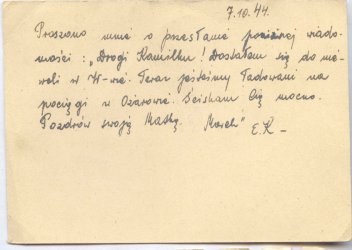 7.10.44.
Proszono mnie o przesłanie poniższej wiado-
mości: „Drogi Kamilku! Dostałem się do nie-
woli w W-wie. Teraz jesteśmy ładowani na
pociągi w Ożarowie. Ściskam Cię mocno.
Pozdrów swoją Matkę Marek" E.K –